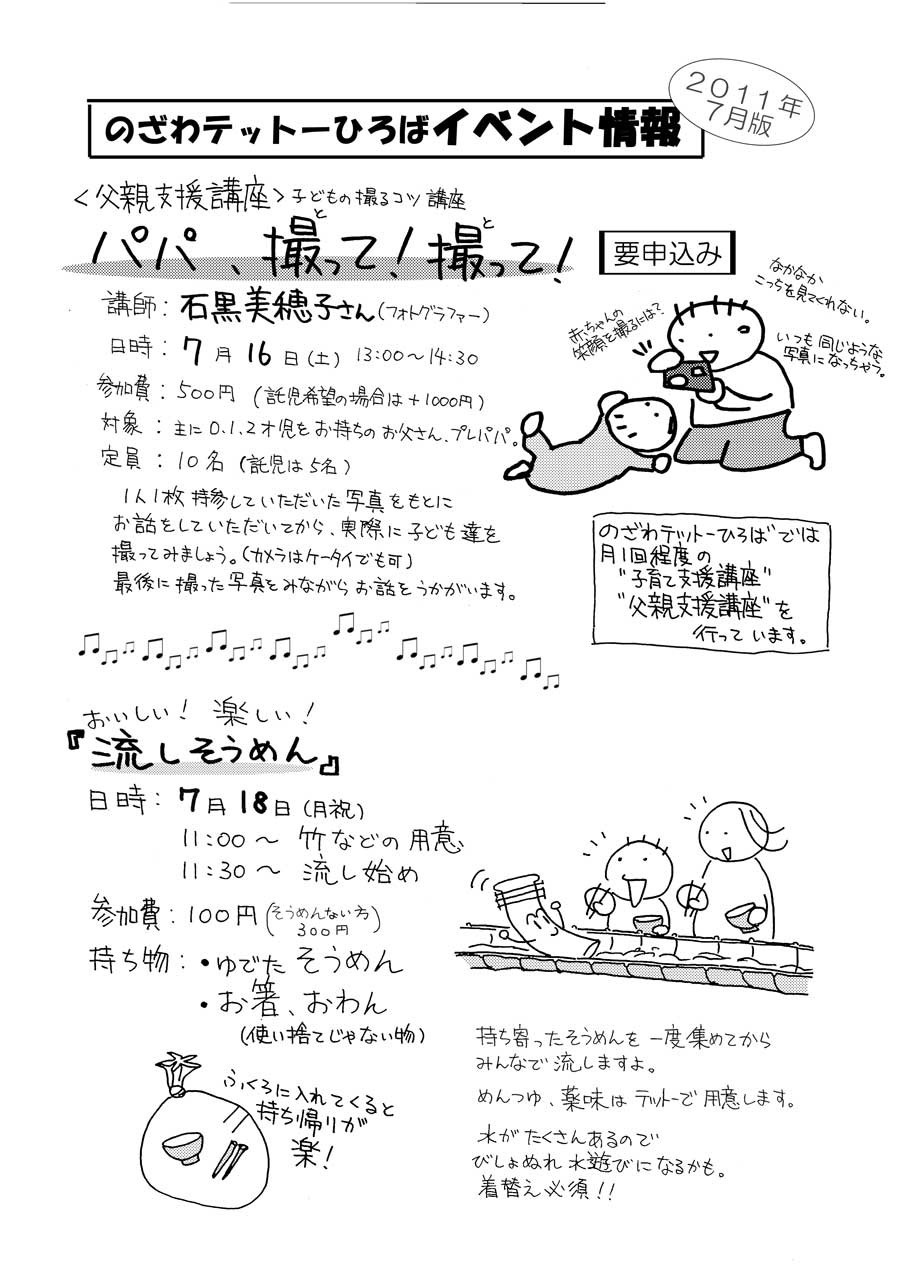 2011年
7月版
のざわテットーひろばイベント情報
<父親支援講座>子どもの撮るコツ講座
パパ、撮って!撮って!
と
と
要申込み
講師:石黒美穂子さん(フォトグラファー)
日時:7月16日(土) 13:00~14:30
参加費:500円(託児希望の場合は+1000円)
対象:主に0.1.2才児をお持ちのお父さん、プレパパ。
定員:10名(託児は5名)
1人1枚持参していただいた写真をもとに
お話をしていただいてから、実際に子ども達を
撮ってみましょう。(カメラはケータイでも可)
最後に撮った写真をみながらお話をうかがいます。
赤ちゃんの
笑顔を撮るには?
なかなか
こっちを見てくれない。
いつも同じような
写真になっちゃう。
のざわテットーひろばでは
月1回程度の
"子育て支援講座"
"父親支援講座"を
行っています。
おいしい!楽しい!
『流しそうめん』
日時:7月18日(月祝)
11:00~竹などの用意
11:30~流し始め
参加費:100円(そうめんない方
300円)
持ち物:・ゆでたそうめん
・お箸、おわん
(使い捨てじゃない物)
ふくろに入れてくると
持ち帰りが
楽!
持ち寄ったそうめんを一度集めてから
みんなで流しますよ。
めんつゆ、薬味はテットーで用意します。
水がたくさんあるので
びしょぬれ水遊びになるかも。
着替え必須!!